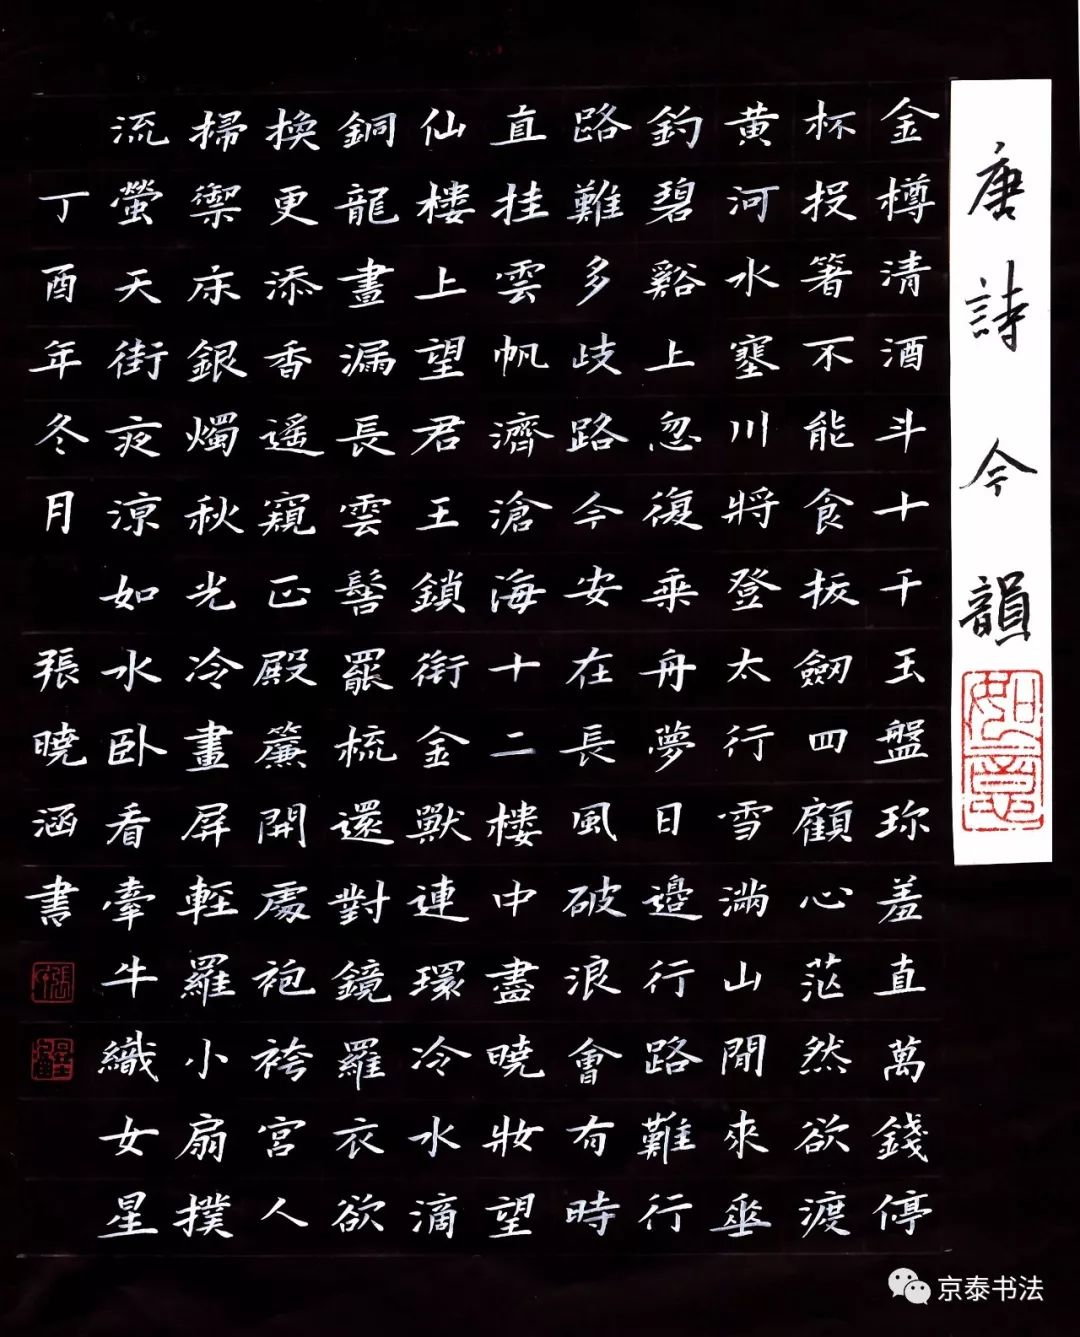 唐詩今韻
如意
金樽清酒斗十千玉盤珎羞直萬錢停
杯投箸不能食拔劒四顧心茫然欲渡
黄河水塞川將登太行雪滿山閒來坐
釣碧谿上忽復乘舟夢日邊行路難行
路難多歧路今安在長風破浪會有時
直挂雲帆濟滄海十二樓中盡曉妝望
仙樓上望君王鎖銜金獸連環冷水滴
銅龍晝漏長雲髻罷梳還對鏡羅衣欲
換更添香遥窺正殿簾開處袍袴宮人
掃御床銀燭秋光冷畫屏輕羅小扇撲
流螢天街夜涼如水卧看牽牛織女星
丁酉年冬月 張曉涵書
京泰书法